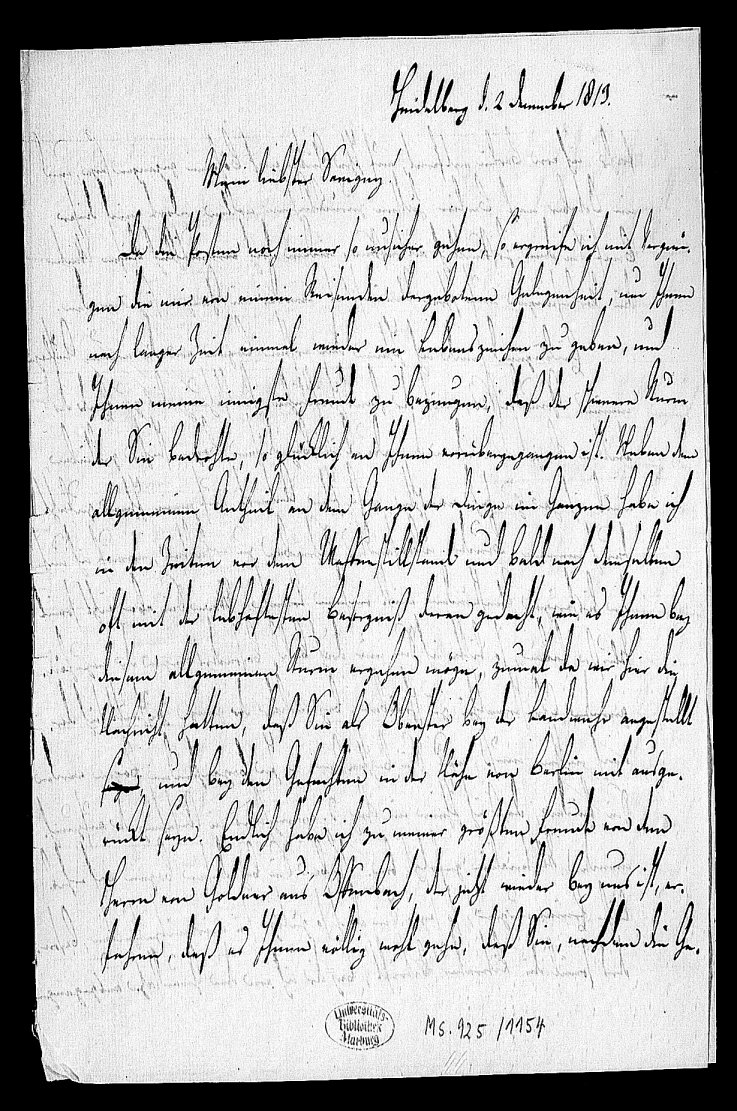 Heidelberg d. 2 December 1813.
Mein liebster Savigny!
Da die Posten noch immer so unsicher gehen, so ergreife ich mit Vergnü-
gen die mir von einem Reisenden dargebotene Gelegenheit, um Ihnen
nach langer Zeit einmal wieder ein Lebenszeichen zu geben, und
Ihnen meine innigste Freude zu bezeugen, daß der schwere Sturm
der Sie bedrohte, so glücklich an Ihnen vorübergegangen ist. Neben dem
allgemeinen Antheil an dem Gange der Dinge im Ganzen habe ich
in den Zeiten vor dem Waffenstillstand und bald nach demselben
oft mit der lebhaftesten Besorgniß daran gedacht, wie es Ihnen bey
diesem allgemeinen Sturm ergehen möge, zumal da wir hier die
Nachricht hatten, daß Sie als Obrister bey der Landwehr angestellt
und bey den Gefechten in der Nähe von Berlin mit ausge-
rückt seyn. Endlich habe ich zu meiner größten Freude von dem
Herrn von Goldner aus Offenbach, der jetzt wieder bey uns ist, er-
fahren, daß es Ihnen völlig wohl gehe, daß Sie, nachdem die Ge-
Universitäts-
Bibliothek
Marburg
Ms. 925/1154